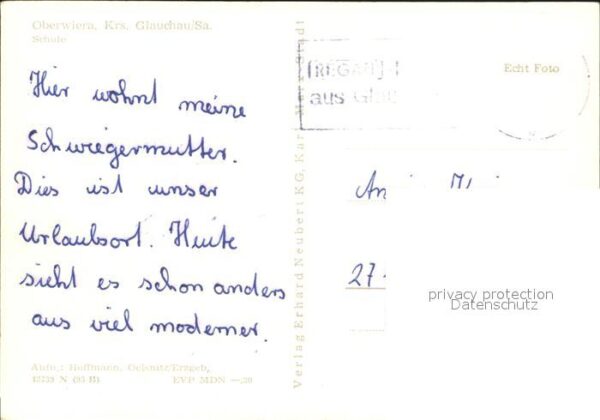 Oberwiera, Krs. Glauchau/Sa.
Schule
Hier wohnt meine
Schwiegermutter.
Dies ist unser
Urlaubsort. Heute
sieht es schon anders
aus viel moderner.
Aufn.: Hoffmann, Oelsnitz/Erzgeb.
EVP MDN —,20
Verlag Erhard Neubert KG, Karl-Marx-Stadt
aus
Echt Foto
27
privacy protection
Datenschutz